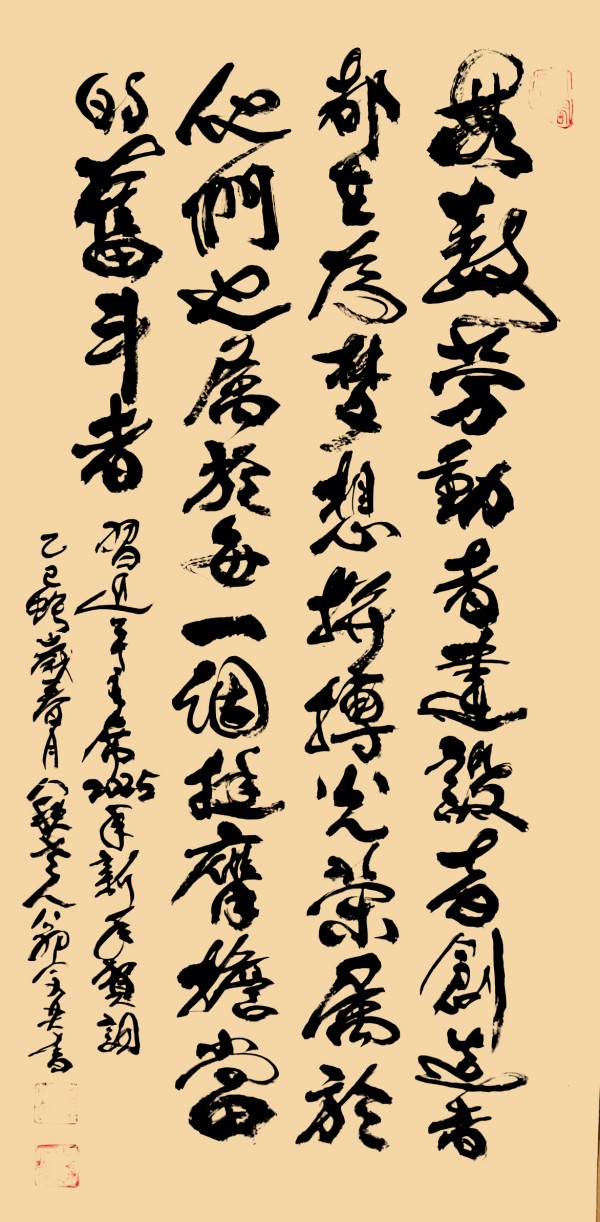 無數劳動者建設者創造者
都在為梦想拚搏光荣属於
他們也属於每一個挺膺擔當
的奮斗者
習近平主席2025年新年賀詞
乙巳蛇歲春月老人書